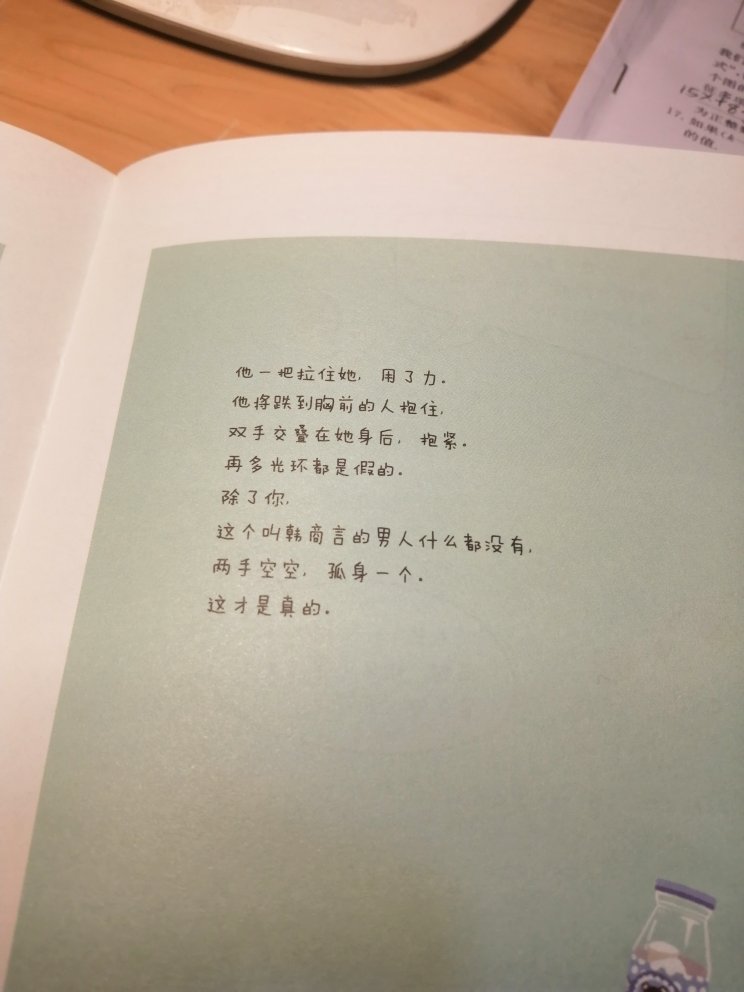 他一把拉住她，用了力。
他将跌到胸前的人抱住，
双手交叠在她身后，抱紧。
再多光环都是假的。
除了你，
这个叫韩商言的男人什么都没有，
两手空空，孤身一个。
这才是真的。
我们
式”，
个图的
15×+8
为正整
17. 如果(k-
的值.